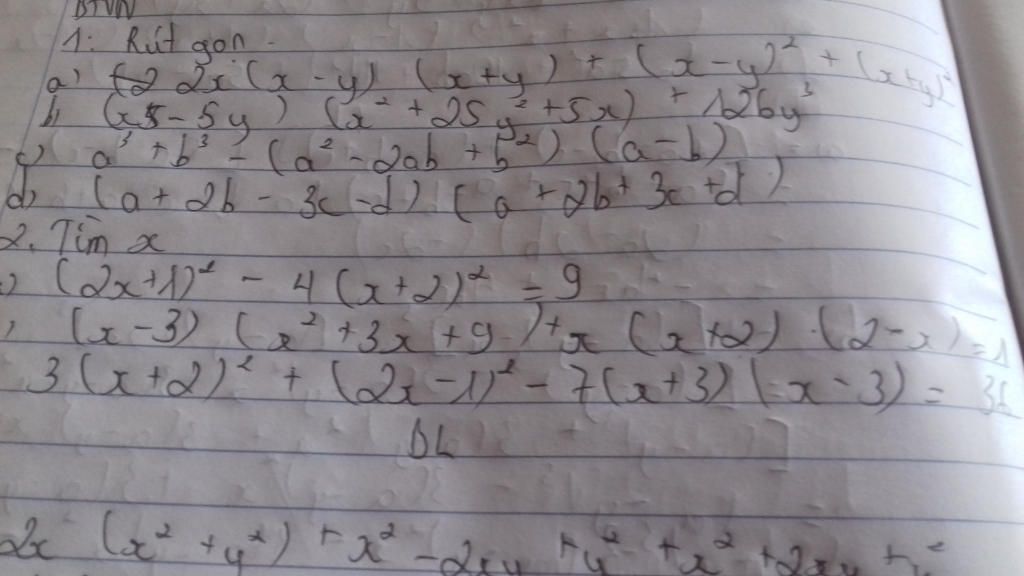 BTVN
1: Rút gọn
a) 2x (x - y) (x + y) + (x - y)² + (x + y)²
b) (x - 5y) (x² + 25y² + 5x) + 126y³
c) a³ + b³ - (a² - 2ab + b²) (a - b)
d) (a + 2b - 3c - d) (a + 2b + 3c + d)
2. Tìm x
) (2x + 1)² - 4 (x + 2)² = 9
) (x - 3) (x² + 3x + 9) + x (x + 2) . (2 - x) = 1
3 (x + 2)² + (2x - 1)² - 7 (x + 3) (x - 3) =
BL
2x (x² + y²) + x² - 2xy + y² + x² + 2xy +